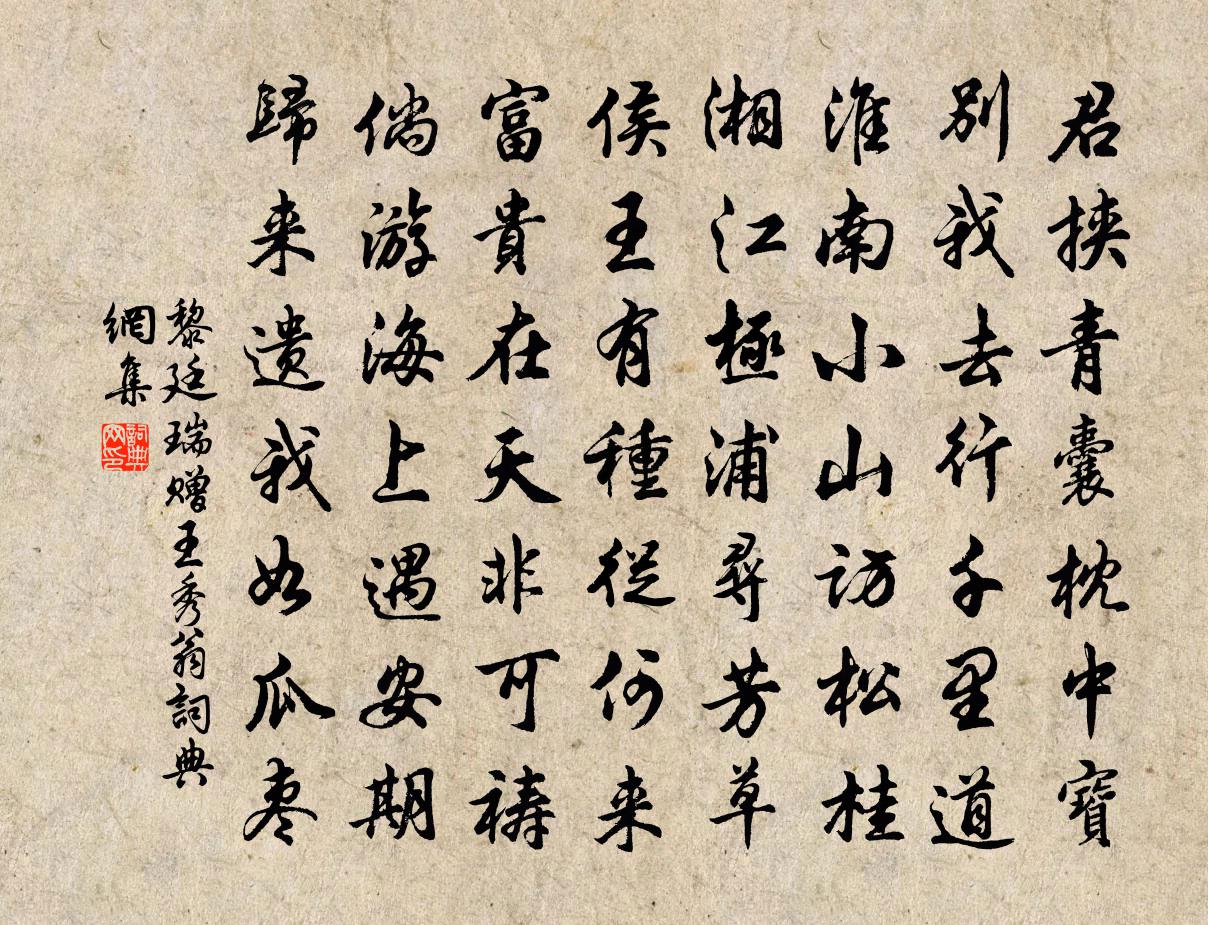 君挾青囊枕中寶
別我去行千里道
淮南小山訪松桂
湘江極浦尋芳草
侯王有種從何来
富貴在天非可禱
倘游海上遇安期
歸来遺我如瓜枣
黎廷瑞贈王秀翁詞典
網集
詞典網印